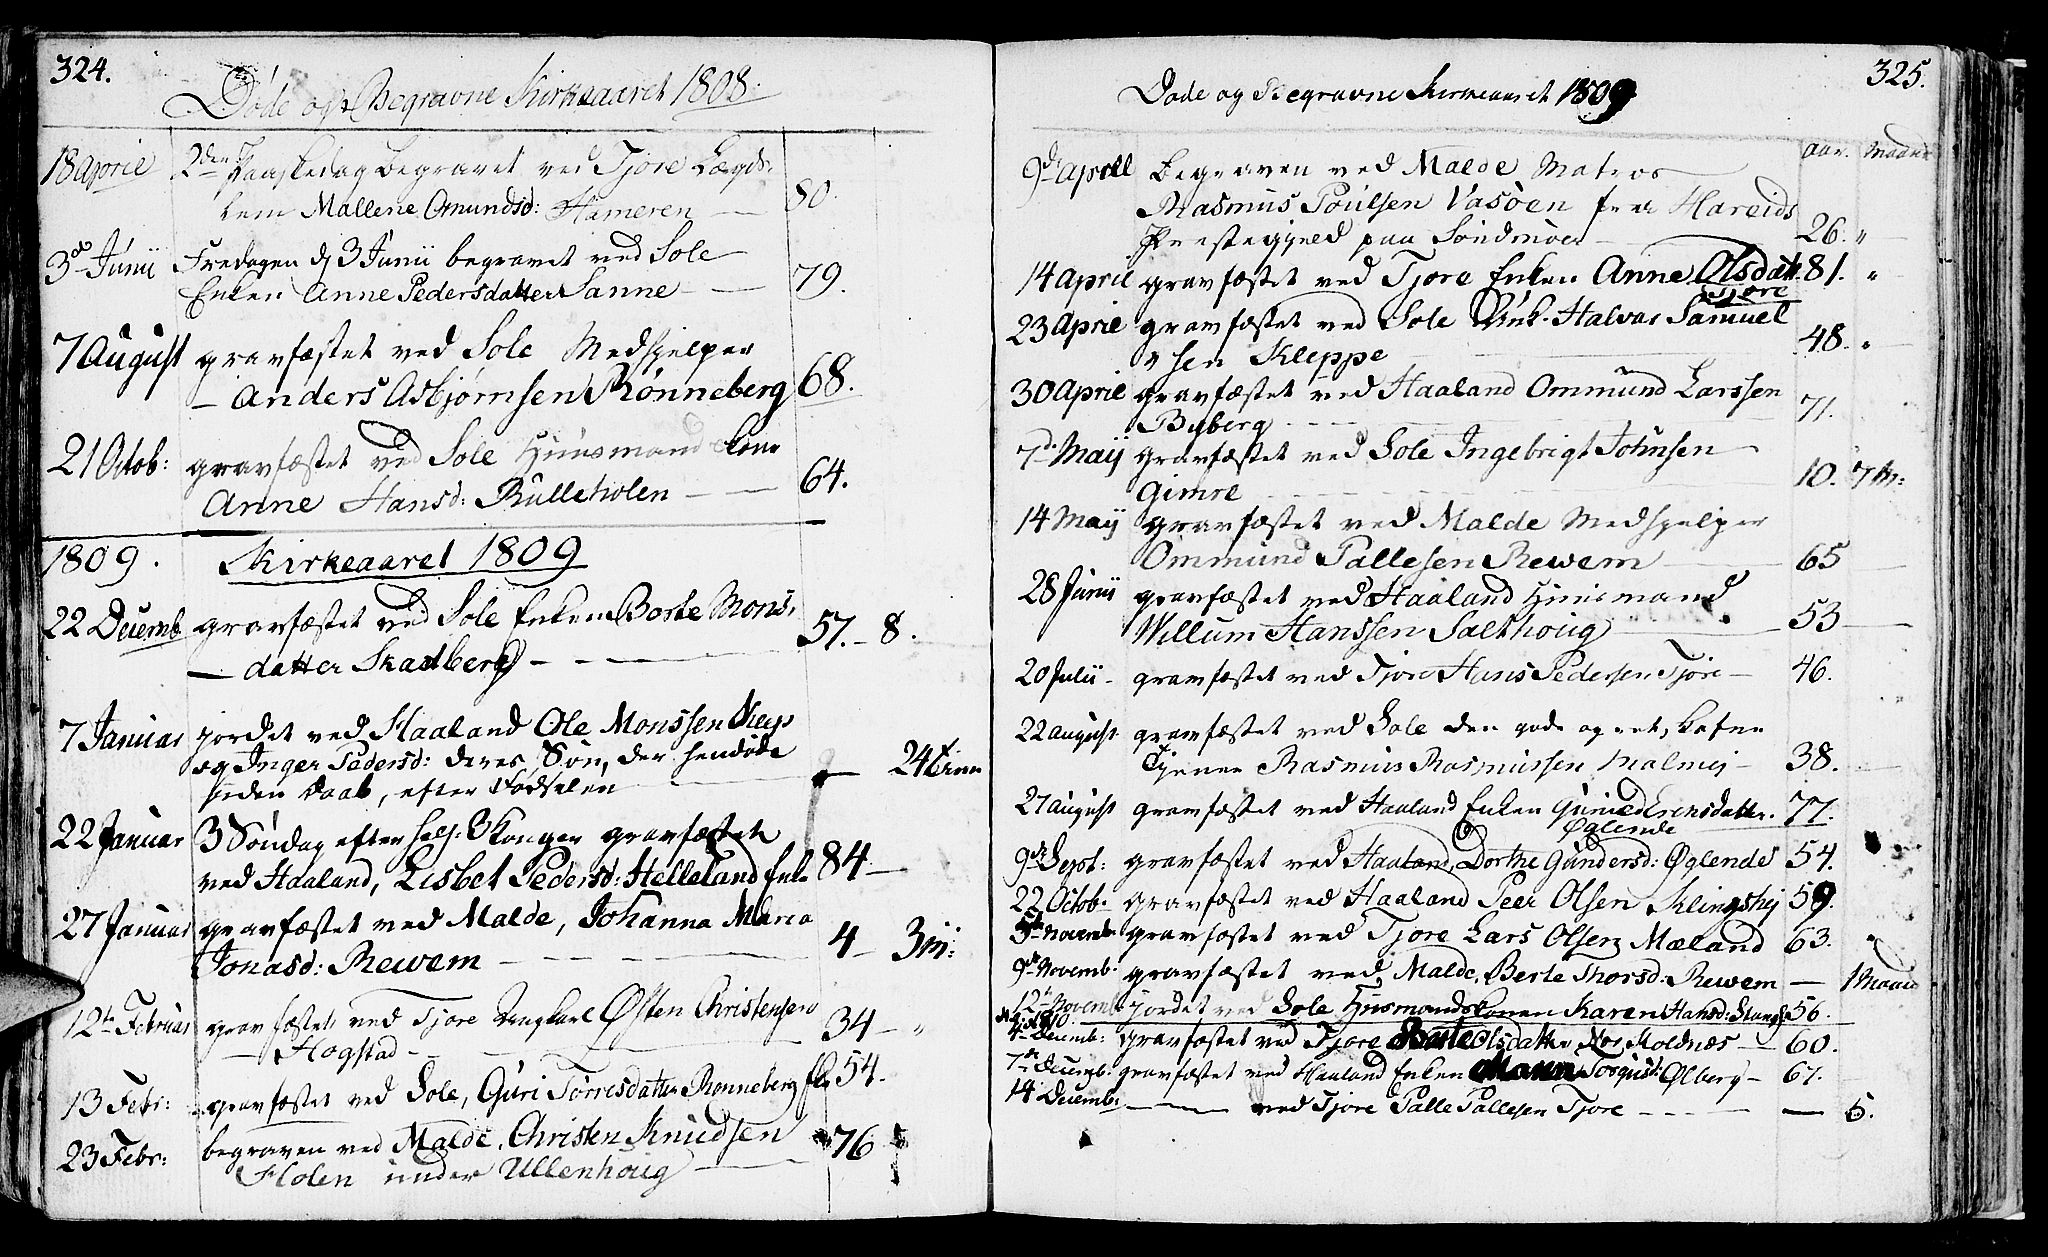 324.
Døde og Begravne Kirkeaaret 1808.
18 Aprile 2den Paaskedag begravet ved Tjore Lægds-
lem Mallene Omundsd: Hameren — 80.
3d Junii Fredagen d 3 Junii begravet ved Sole
Enken Anne Pedersdatter Sanne — 79.
7 August gravfæstet ved Sole Medhjelper
— Anders Asbjørnsen Rønneberg 68.
21 Octob: gravfæstet ved Sole Huusmand Kone
Anne Hansd: Rulleholen — 64.
1809. Kirkeaaret 1809
22 Decemb gravfæstet ved Sole Enken Borte Mons-
— datter Skadberg — 57. – 8.
7 Januar jordet ved Haaland Ole Monssen
og Inger Pedersd: deres Søn, der hendøde
uden Daab, efter Fødselen — 24 Tim
22 Januar 3 Søndag efter hell. 3 Konger gravfæstet
ved Haaland, Lisbet Pedersd: Helleland Enk 84 —
27 Januar gravfæstet ved Malde, Johanna Maria
Jonasd: Rewem — 4 – 3 m:
12te Februar gravfæstet ved Tjore Ungkarl Østen Christensen
— Hogstad — 34 – "
13 Febr: gravfæstet ved Sole, Guri Torresdatter Rønneberg 54.
23 Febr: begraven ved Malde, Christen Knudsen
Holen under Ullenhoug — 76
325.
Døde og Begravne Kirkeaaret 1809
Aar. Maaned
9de Aprill begraven ved Malde Matros
Rasmus Poulsen Vasøen fra Hareids
Præstegjeld paa Søndmøer — 26. "
14 April gravfæstet ved Tjore Enken Anne Olsdatt. 81. "
Tjore
23 Aprile gravfæstet ved Sole Halvar Samuel
sen Kleppe — 48. "
30 Aprile gravfæstet ved Haaland Ommund Larssen
Byberg — 71.
7de Maij gravfæstet ved Sole Ingebrigt Johnsen
Gimre — 10. 7 M:
14 Maij gravfæstet ved Malde Medhjelper
Ommund Pallesen Rewem — 65
28 Junii gravfæstet ved Haaland Huusmand
Willum Hanssen Salthoug — 53
20 Julii – gravfæstet ved Tjore Hans Pedersen Tjore — 46.
22 August gravfæstet ved Sole den gode og
Tjener Rasmus Rasmussen Malmej — 38.
27 August gravfæstet ved Haaland Enken Gunild Erensdatter. 77.
Øglende
9de Sept: gravfæstet ved Haaland, Dorthe Gundersd: Øglende 54.
22 Octob. gravfæstet ved Haaland Peer Olsen Klingshej 59.
5te Novemb. gravfæstet ved Tjore Lars Olsen Mæland 63.
9de Novemb. gravfæstet ved Malde, Berte Thorsd: Rewem — 1 Maaned
12te Novemb jordet ved Sole Husmandskonen Karen Hansd: Stangeland 56.
1810.
4de Decemb: gravfæstet ved Tjore Borte Olsdatter Moldnæs — 60.
7de Decemb. gravfæstet ved Haaland Enken Maren Torgusd: Ølberg — 67.
14 Decemb: — ved Tjore Palle Pallesen Tjore — 5.